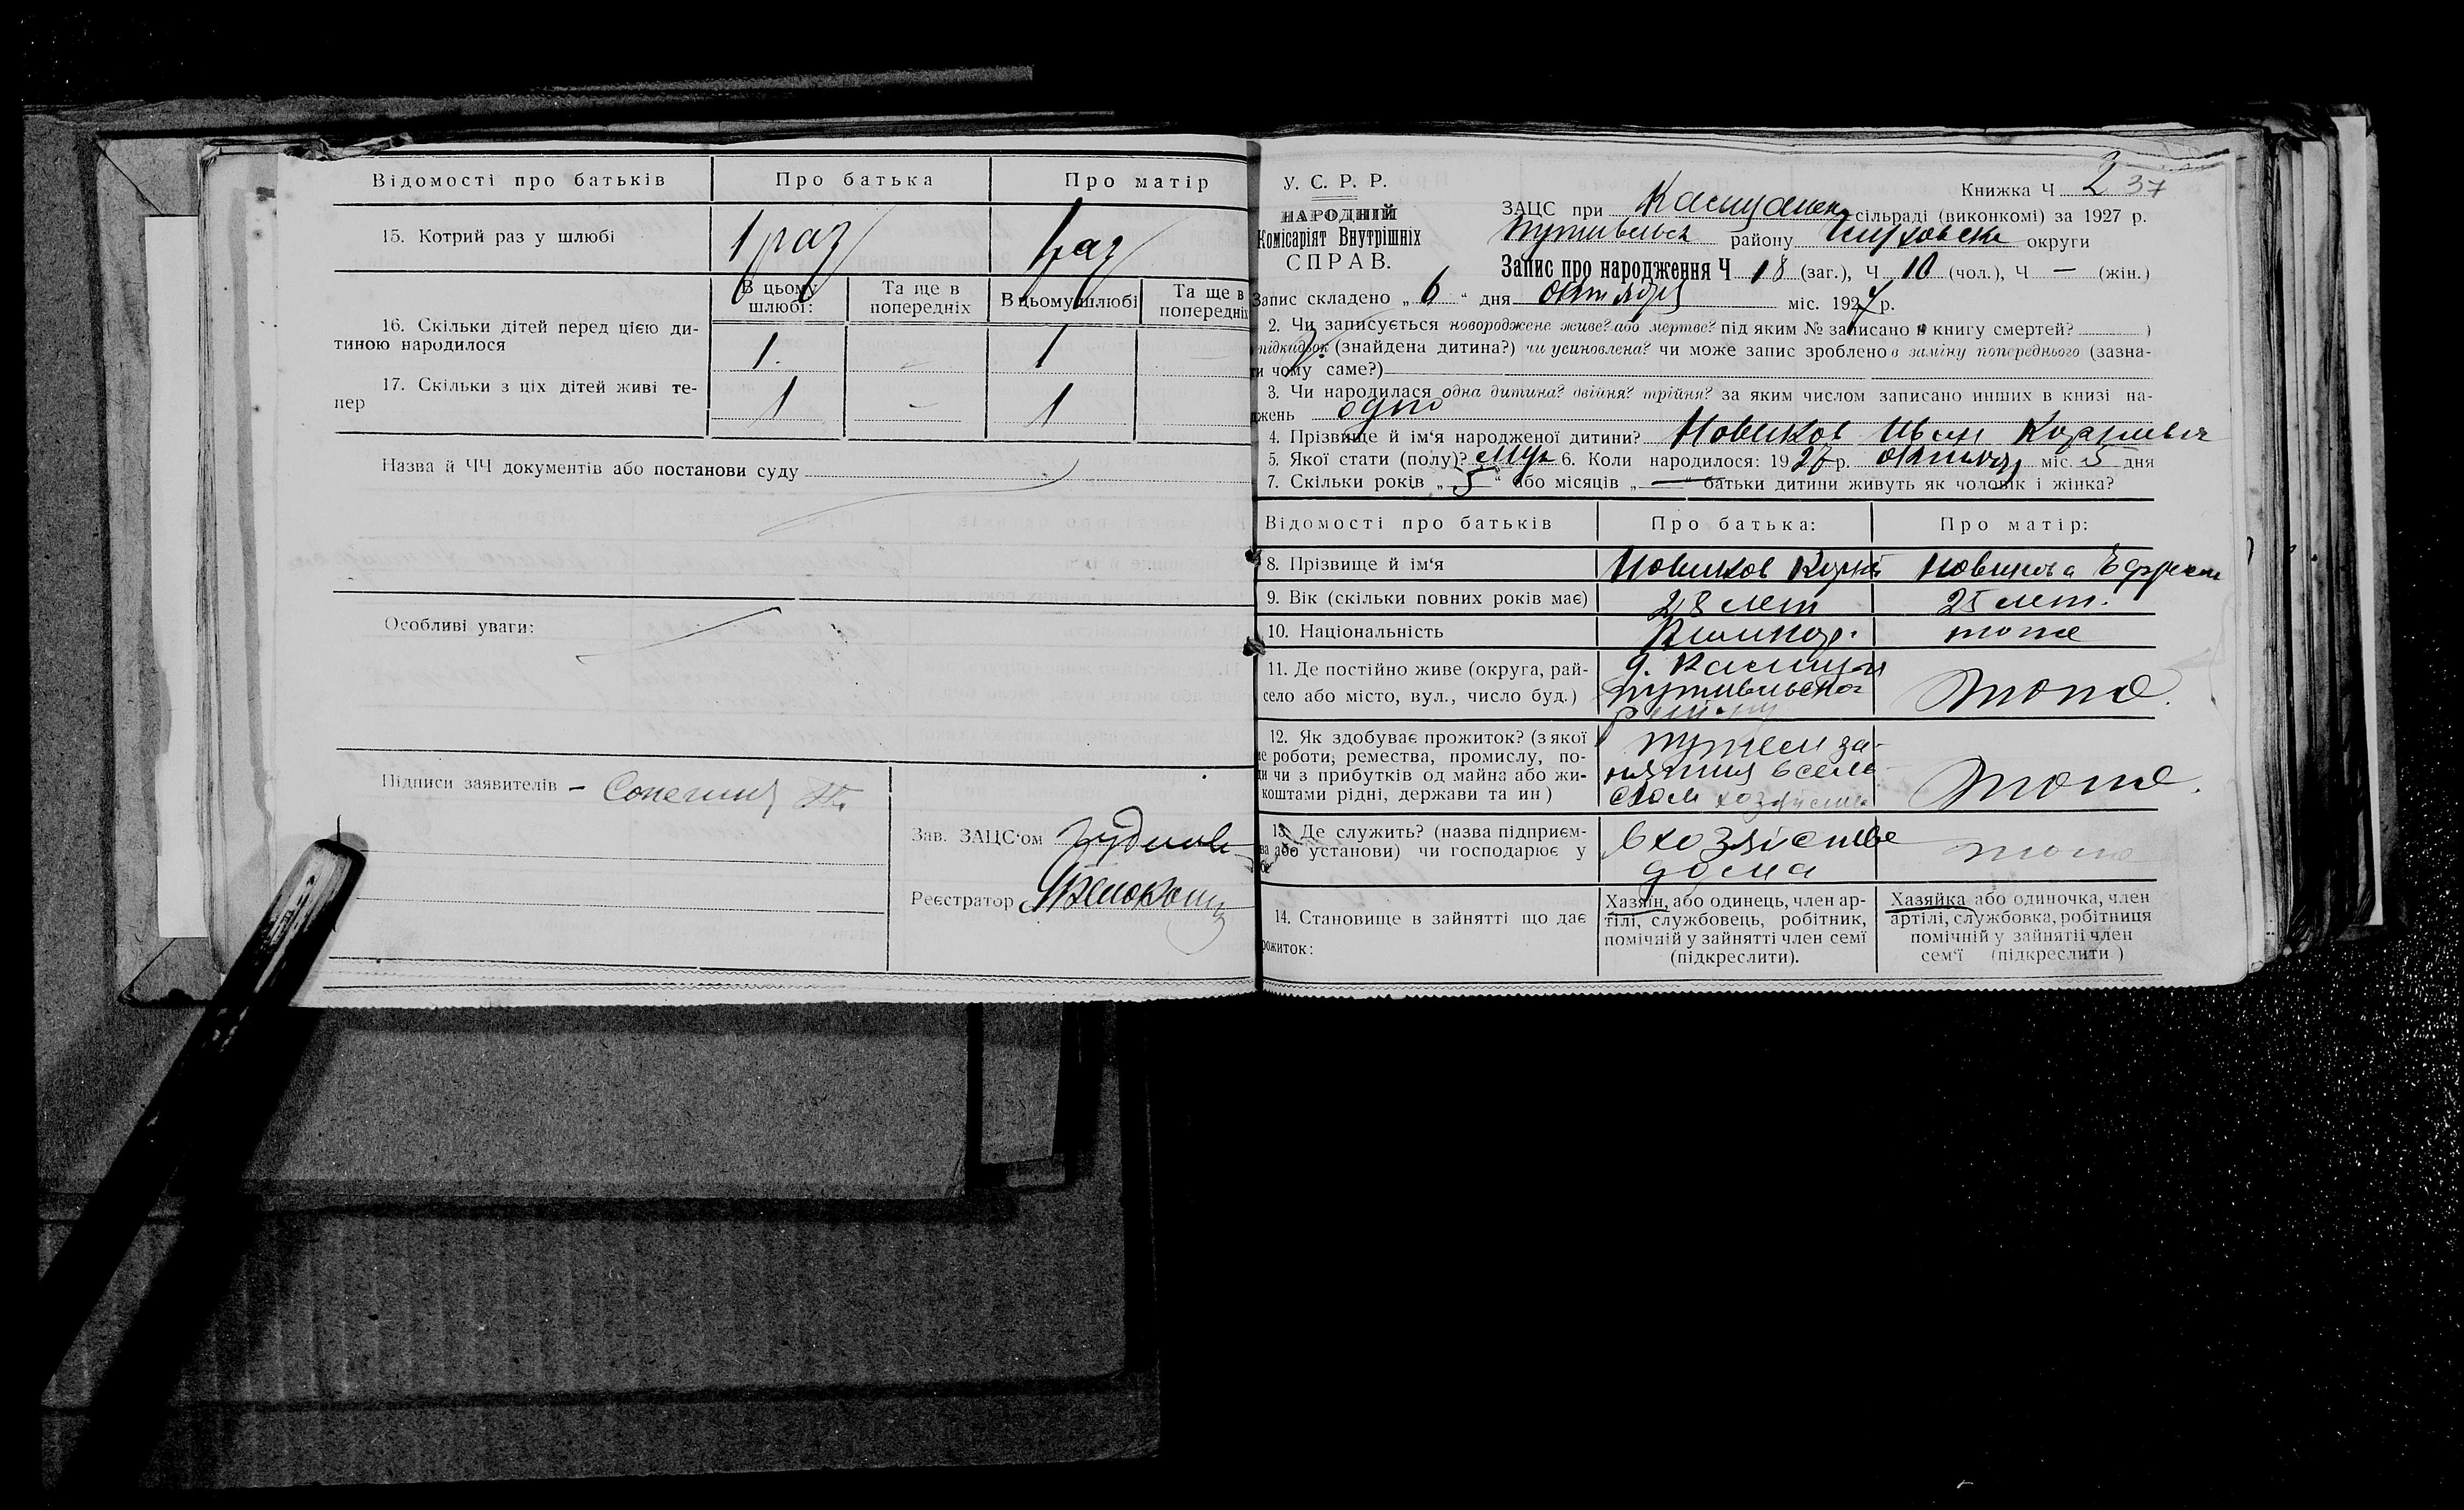 Відомості про батьків Про батька Про матір
15. Котрий раз у шлюбі 1 раз 1 раз
В цьому шлюбі: Та ще в попередніх В цьому шлюбі Та ще в попередніх
16. Скільки дітей перед цією ди-
тиною народилося 1. - 1
17. Скільки з ціх дітей живі те-
пер 1 - 1
Назва й ЧЧ документів або постанови суду
Особливі уваги:
Підписи заявителів –
Зав. ЗАЦС‘ом
Реєстратор
У. С. Р. Р.
НАРОДНІЙ
Комісаріят Внутрішніх
СПРАВ.
Книжка Ч 2 37
ЗАЦС при сільраді (виконкомі) за 1927 р.
Путивльск району Глуховск округи
Запис про народження Ч 18 (заг.), Ч 10 (чол.), Ч — (жін.)
Запис складено „ 6 “ дня октября міс. 1927 р.
2. Чи записується новороджене живе? або мертве? під яким № записано в книгу смертей? )
підкидьок (знайдена дитина?) чи усиновлена? чи може запис зроблено в заміну попереднього (зазна-
ти чому саме?)
3. Чи народилася одна дитина? двійня? трійня? за яким числом записано инших в книзі на-
джень одно
4. Прізвище й ім‘я народженої дитини? Новиков Иван
5. Якої стати (полу)? муж 6. Коли народилося: 1927 р. октября міс. 5 дня
7. Скільки років „ 5 “ або місяців „ — “ батьки дитини живуть як чоловік і жінка?
Відомості про батьків Про батька: Про матір:
8. Прізвище й ім‘я Новиков Новикова
9. Вік (скільки повних років має) 28 лет 25 лет.
10. Національність тоже
11. Де постійно живе (округа, рай-
село або місто, вул., число буд.) д. Путивльского району тоже.
12. Як здобуває прожиток? (з якої
роботи, ремества, промислу, по-
чи з прибутків од майна або жи-
коштами рідні, держави та ин) путем за-
нятия в сель
ском хозяйстве тоже.
13. Де служить? (назва підприєм-
ва або установи) чи господарює у
в хозяйстве
дома тоже
14. Становище в зайнятті що дає
рожиток:
Хазяїн, або одинець, член ар-
тілі, службовець, робітник,
помічній у зайнятті член семї
(підкреслити).
Хазяйка або одиночка, член
артілі, службовка, робітниця
помічній у зайнятіі член
сем‘ї (підкреслити )